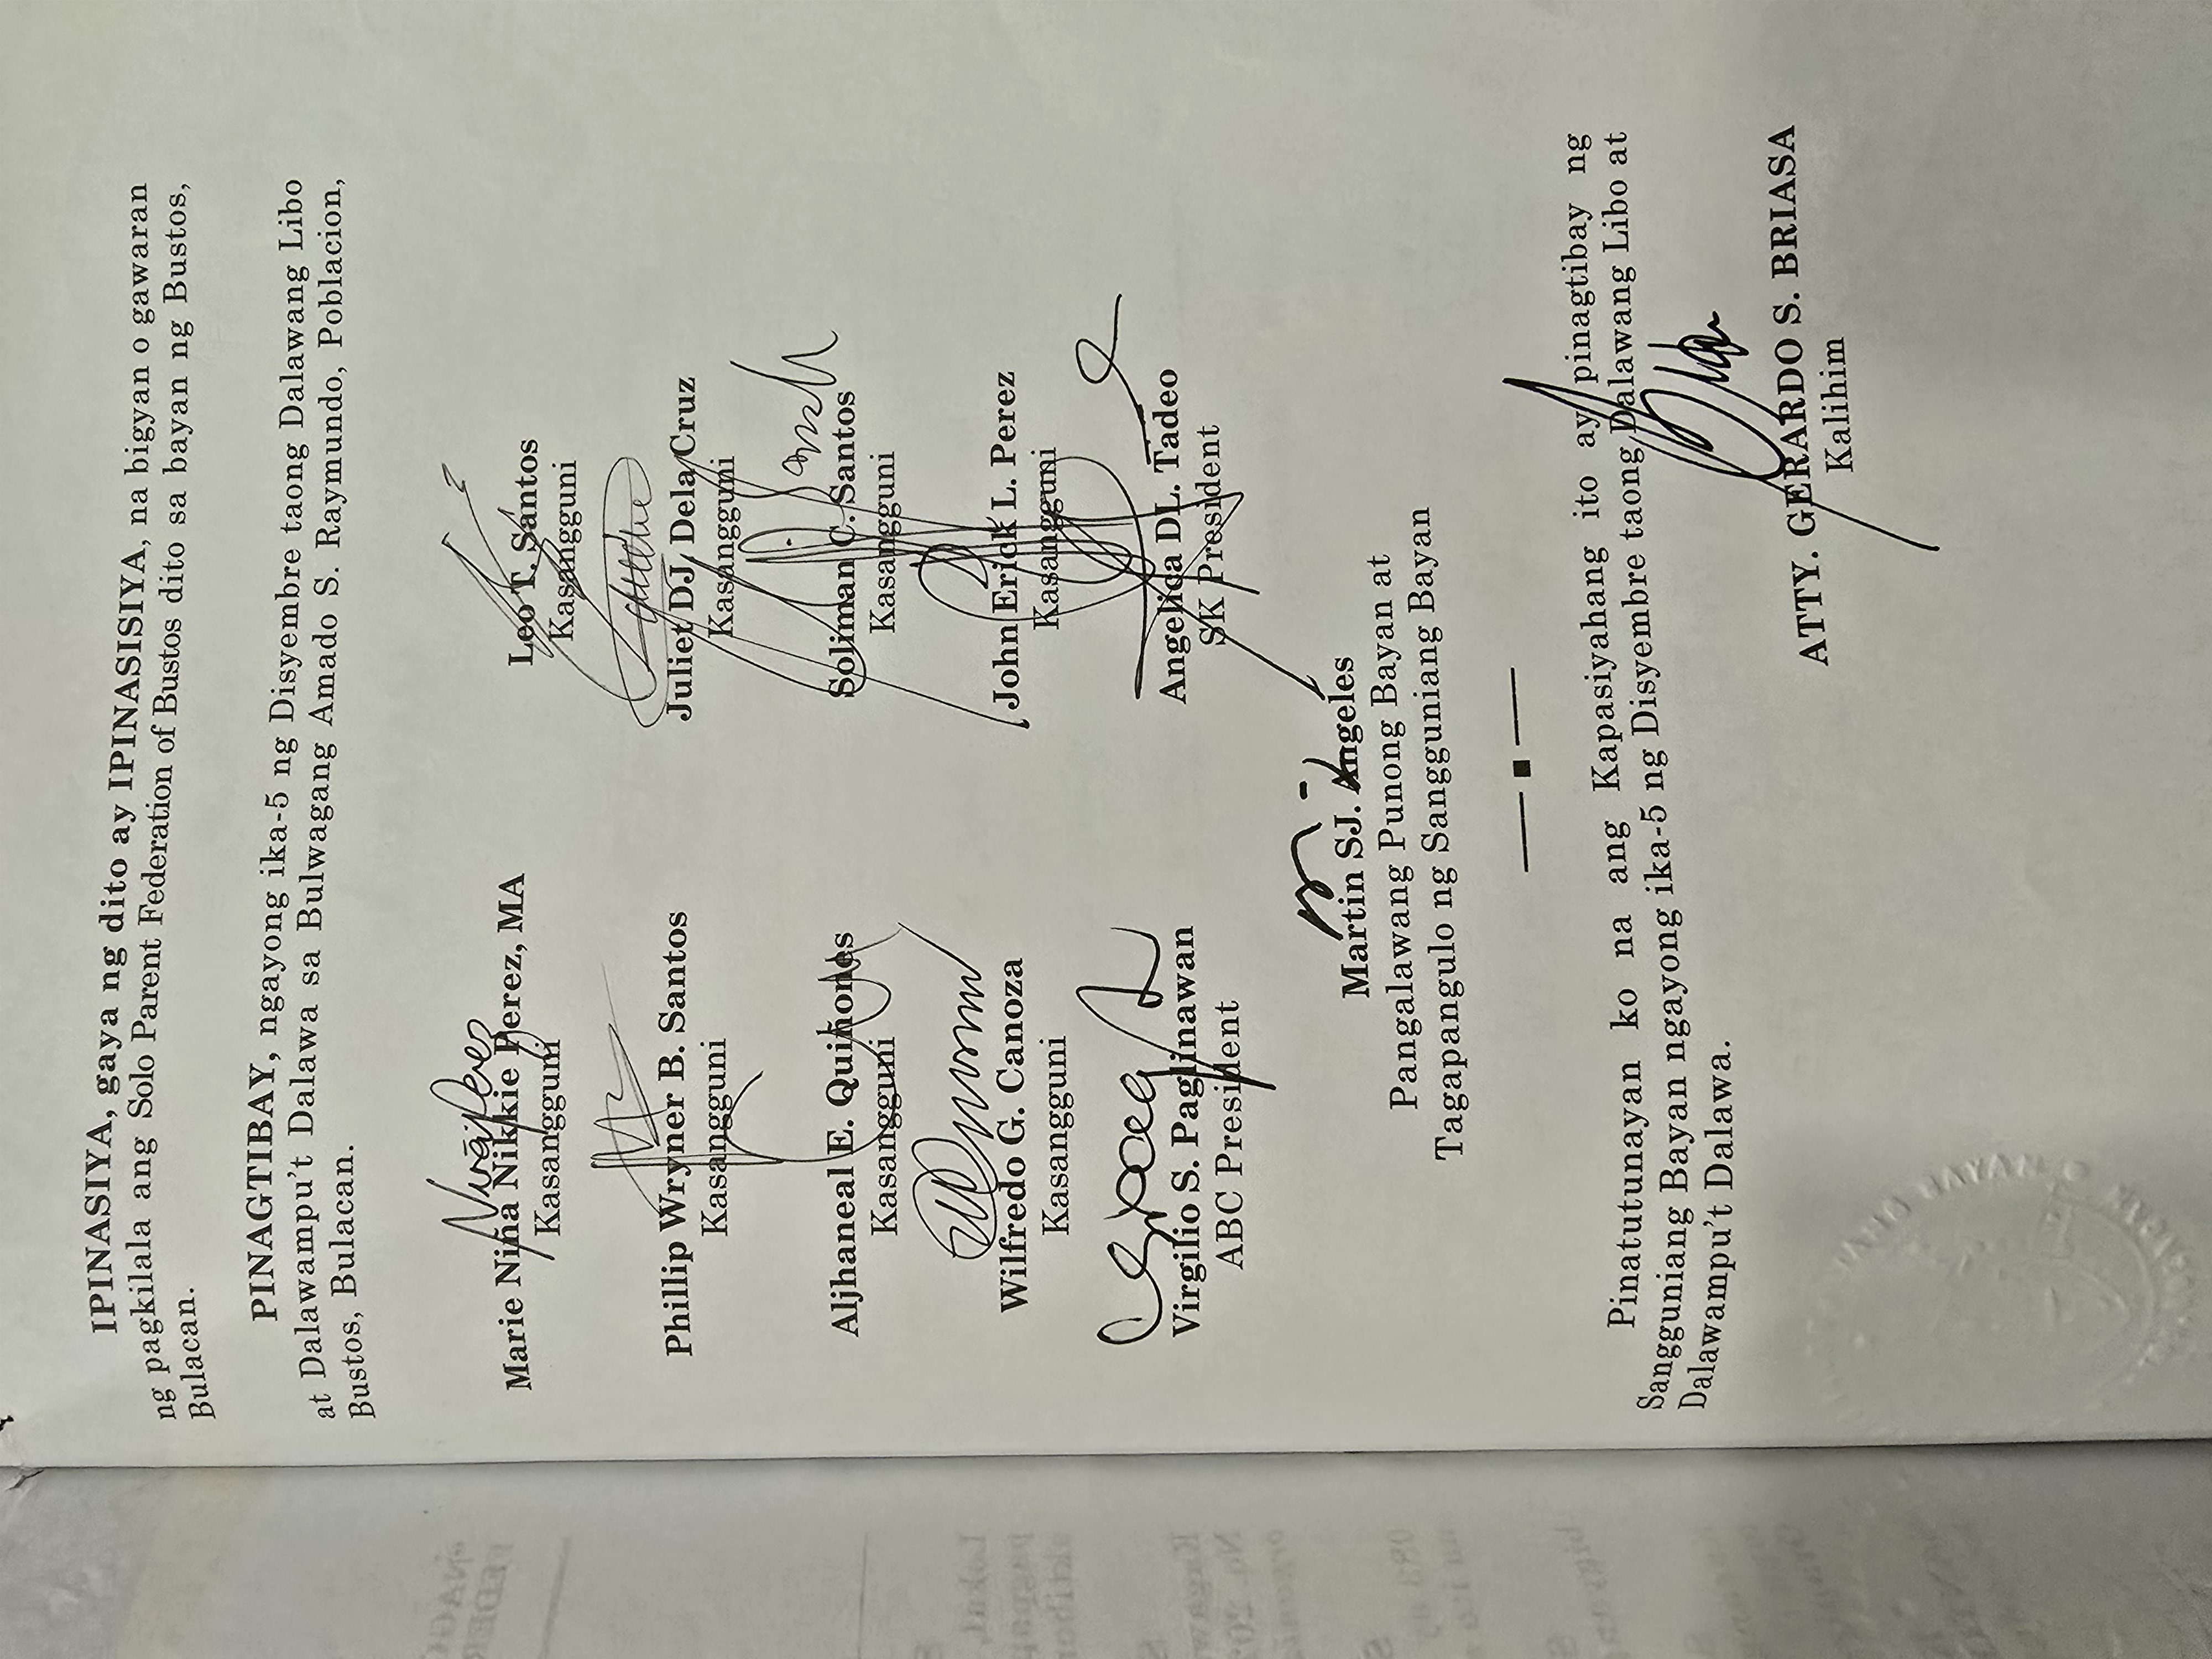 IPINASIYA, gaya ng dito ay IPINASISIYA, na bigyan o gawaran
ng pagkilala ang Solo Parent Federation of Bustos dito sa bayan ng Bustos,
Bulacan.
PINAGTIBAY, ngayong ika-5 ng Disyembre taong Dalawang Libo
at Dalawampu't Dalawa sa Bulwagang Amado S. Raymundo, Poblacion,
Bustos, Bulacan.
Marie Niña Nikkie Perez, MA
Kasangguni
Leo T. Santos
Kasangguni
Phillip Wryner B. Santos
Kasangguni
Juliet DJ. Dela Cruz
Kasangguni
Aljhaneal E. Quiñones
Kasangguni
Soliman C. Santos
Kasangguni
Wilfredo G. Canoza
Kasangguni
John Erick L. Perez
Kasangguni
Virgilio S. Paglinawan
ABC President
Angelica DL. Tadeo
SK President
Martin SJ. Angeles
Pangalawang Punong Bayan at
Tagapangulo ng Sangguniang Bayan
Pinatutunayan ko na ang Kapasiyahang ito ay pinagtibay ng
Sangguniang Bayan ngayong ika-5 ng Disyembre taong Dalawang Libo at
Dalawampu't Dalawa.
ATTY. GERARDO S. BRIASA
Kalihim